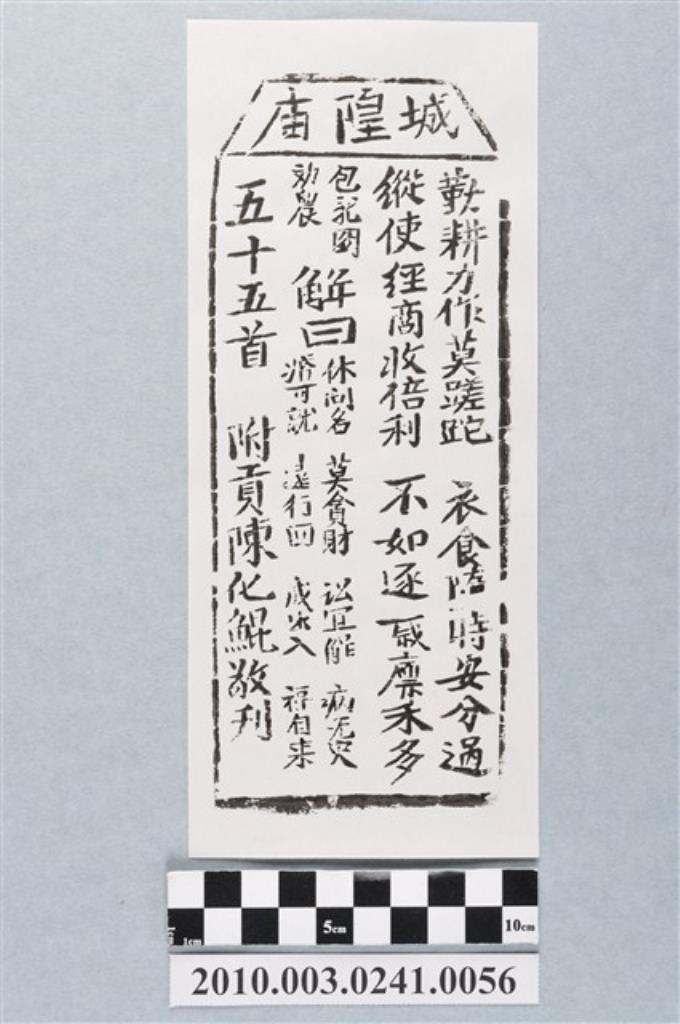 城隍庙
勤耕力作莫蹉跎 衣食隨時安分過
縱使經商收倍利 不如逐歲廩禾多
包龍圖
勸農
解曰
休問名 莫貪財 訟宜解 病无災
可就 遠行回 入 福自来
五十五首 附貢陳化鯤敬刊
1cm 5cm 10cm
2010.003.0241.0056